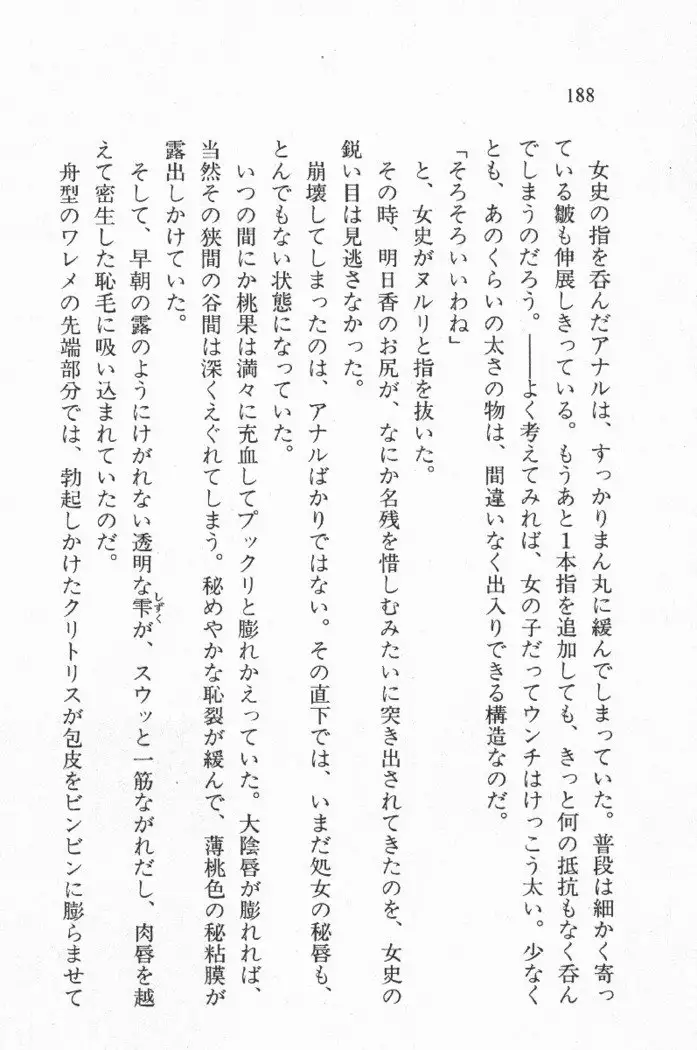 188
女史の指を呑んだアナルは、すっかりまん丸に緩んでしまっていた。普段は細かく寄っ
ている皺も伸展しきっている。もうあと1本指を追加しても、きっと何の抵抗もなく呑ん
でしまうのだろう。――よく考えてみれば、女の子だってウンチはけっこう太い。少なく
とも、あのくらいの太さの物は、間違いなく出入りできる構造なのだ。
「そろそろいいわね」
と、女史がヌルリと指を抜いた。
その時、明日香のお尻が、なにか名残を惜しむみたいに突き出されてきたのを、女史の
鋭い目は見逃さなかった。
崩壊してしまったのは、アナルばかりではない。その直下では、いまだ処女の秘唇も、
とんでもない状態になっていた。
いつの間にか桃果は満々に充血してプックリと膨れかえっていた。大陰唇が膨れれば、
当然その狭間の谷間は深くえぐれてしまう。秘めやかな恥裂が緩んで、薄桃色の秘粘膜が
露出しかけていた。
そして、早朝の露のようにけがれない透明な雫しずくが、スウッと一筋ながれだし、肉唇を越
えて密生した恥毛に吸い込まれていたのだ。
舟型のワレメの先端部分では、勃起しかけたクリトリスが包皮をビンビンに膨らませて